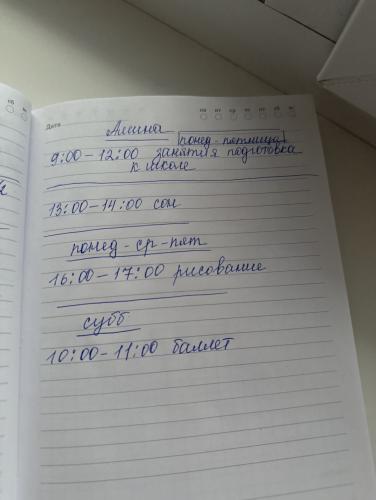 Дата
пн вт ср чт пт сб вс
Амина
понед - пятница
9:00 – 12:00 занятия подготовка
к школе
13:00 – 14:00 сон
понед - ср - пят
16:00 – 17:00 рисование
субб
10:00 – 11:00 баллет